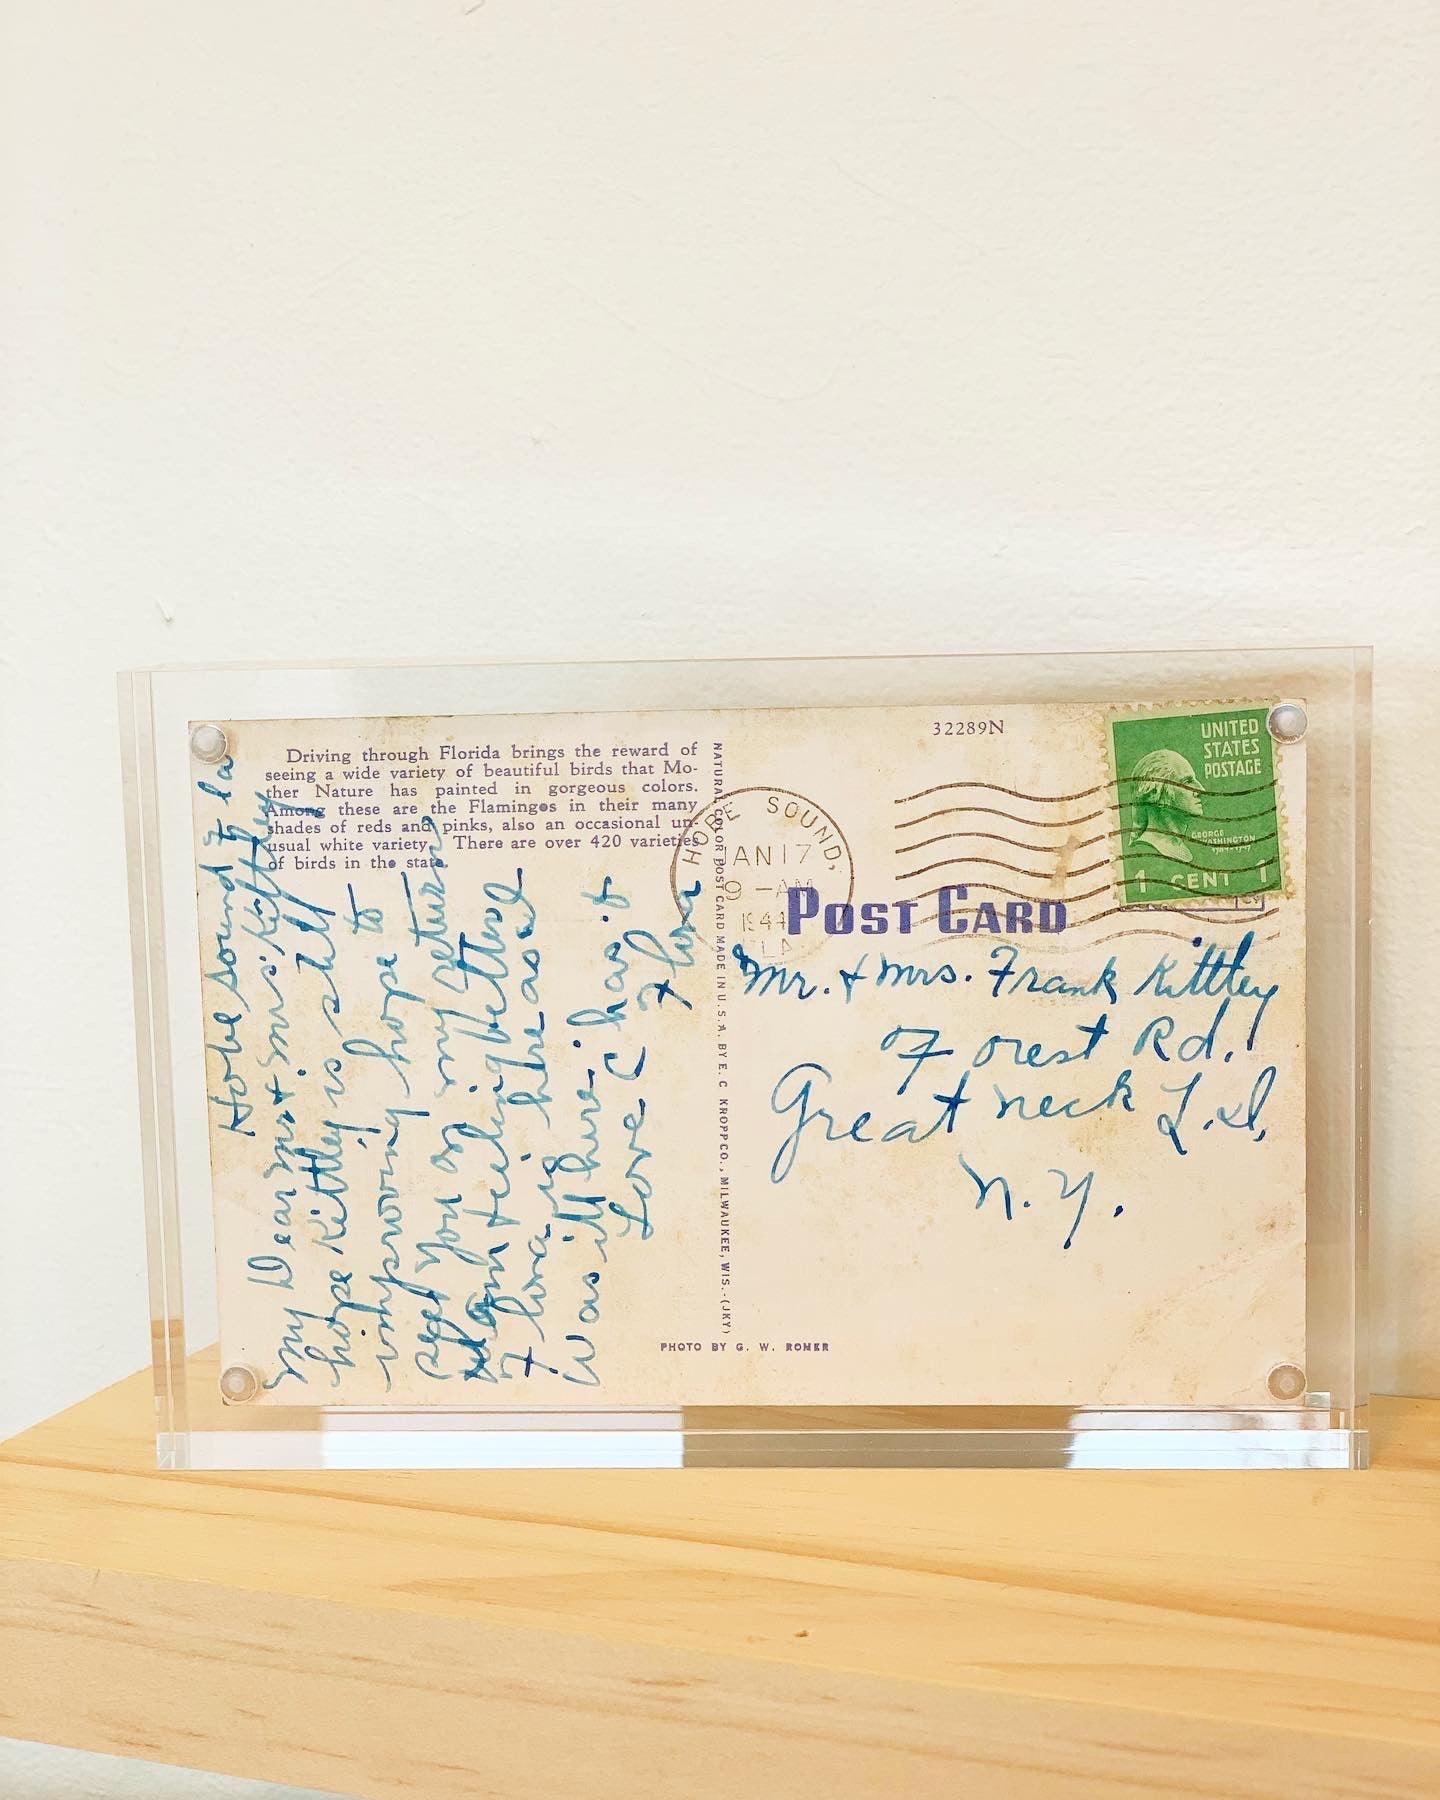 Driving through Florida brings the reward of
seeing a wide variety of beautiful birds that Mo-
ther Nature has painted in gorgeous colors.
Among these are the Flamingos in their many
shades of reds and pinks, also an occasional un-
usual white variety. There are over 420 varieties
of birds in the state.
Hobe Sound Fla
My Dear Mr & Mrs Kittley
hope Kittley is still
improving hope to
see you on my return
am feeling better
Flora is here as al
Was ill here. has it
Love C
Flora
NATURAL COLOR POST CARD MADE IN U.S.A. BY E. C. KROPP CO., MILWAUKEE, WIS.-(JKY)
PHOTO BY G. W. ROMER
32289N
HOBE SOUND,
JAN 17
9 - AM
1944
FLA
POST CARD
UNITED
STATES
POSTAGE
GEORGE
WASHINGTON
1 CENT 1
Mr. & Mrs. Frank Kittley
Forest Rd.
Great Neck L.I.
N.Y.